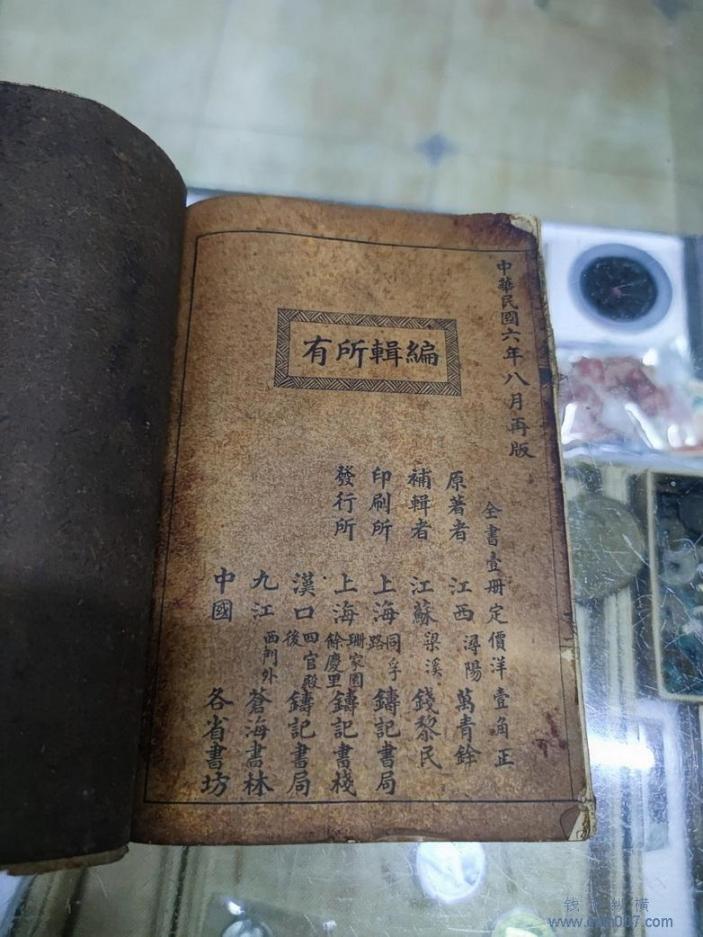 中華民國六年八月再版
有所輯編
全書壹冊定價洋壹角正
原著者 江西 潯陽 萬青銓
補輯者 江蘇 梁溪 錢黎民
印刷所 上海 同孚路 鑄記書局
發行所 上海 珊家園餘慶里 鑄記書棧
漢口 四官殿後 鑄記書局
九江 西門外 蒼海書林
中國 各省書坊
钱 纵横
www.coin007.com